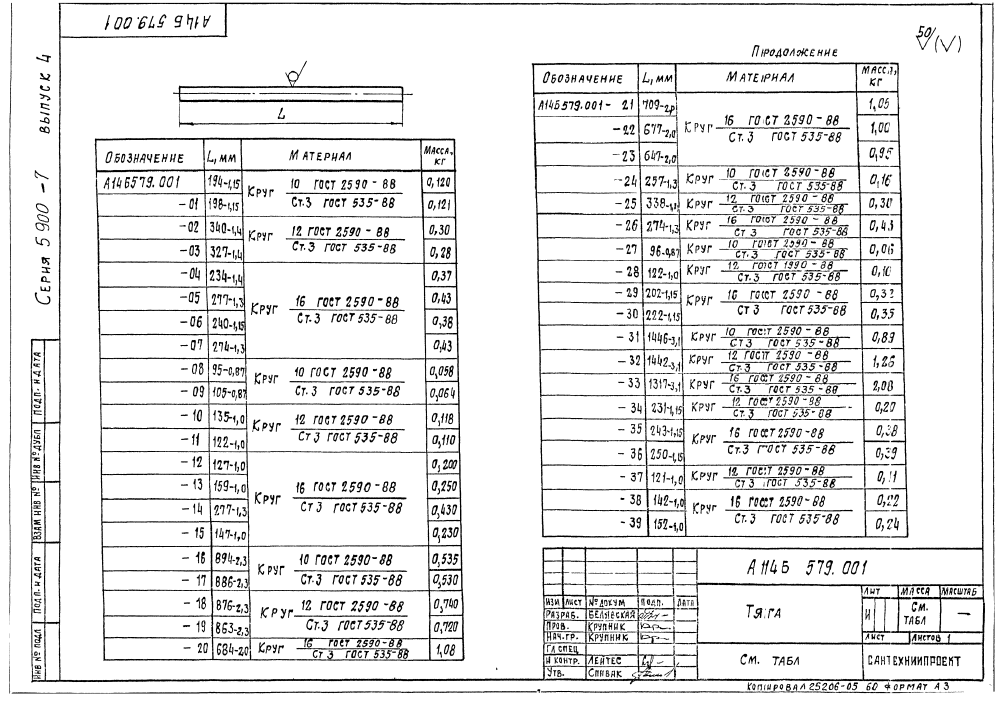 А14Б 579.001
Серия 5.900-7 выпуск 4
50/ (√)
L
Обозначение L, мм Материал Масса, кг
А14Б579.001 194-1,15 Круг 10 ГОСТ 2590-88 / Ст.3 ГОСТ 535-88 0,120
-01 198-1,15 0,121
-02 340-1,4 Круг 12 ГОСТ 2590-88 / Ст.3 ГОСТ 535-88 0,30
-03 327-1,4 0,28
-04 234-1,4 Круг 16 ГОСТ 2590-88 / Ст.3 ГОСТ 535-88 0,37
-05 277-1,3 0,43
-06 240-1,15 0,38
-07 274-1,3 0,43
-08 95-0,87 Круг 10 ГОСТ 2590-88 / Ст.3 ГОСТ 535-88 0,058
-09 105-0,87 0,064
-10 135-1,0 Круг 12 ГОСТ 2590-88 / Ст.3 ГОСТ 535-88 0,118
-11 122-1,0 0,110
-12 127-1,0 Круг 16 ГОСТ 2590-88 / Ст.3 ГОСТ 535-88 0,200
-13 159-1,0 0,250
-14 277-1,3 0,430
-15 147-1,0 0,230
-16 894-2,3 Круг 10 ГОСТ 2590-88 / Ст.3 ГОСТ 535-88 0,535
-17 886-2,3 0,530
-18 876-2,3 Круг 12 ГОСТ 2590-88 / Ст.3 ГОСТ 535-88 0,740
-19 863-2,3 0,720
-20 684-20 Круг 16 ГОСТ 2590-88 / Ст 3 ГОСТ 535-88 1,08
Продолжение
Обозначение L, мм Материал Масса, кг
А14Б579.001-21 709-2,0 Круг 16 ГОСТ 2590-88 / Ст.3 ГОСТ 535-88 1,05
-22 677-2,0 1,00
-23 647-2,0 0,95
-24 257-1,3 Круг 10 ГОСТ 2590-88 / Ст.3 ГОСТ 535-88 0,16
-25 338-1,4 Круг 12 ГОСТ 2590-88 / Ст.3 ГОСТ 535-88 0,30
-26 274-1,3 Круг 16 ГОСТ 2590-88 / Ст 3 ГОСТ 535-88 0,43
-27 96-0,87 Круг 10 ГОСТ 2590-88 / Ст.3 ГОСТ 535-88 0,06
-28 122-1,0 Круг 12 ГОСТ 1990-88 / Ст.3 ГОСТ 535-88 0,10
-29 202-1,15 Круг 16 ГОСТ 2590-88 / Ст.3 ГОСТ 535-88 0,32
-30 222-1,15 0,35
-31 1446-3,1 Круг 10 ГОСТ 2590-88 / Ст3 ГОСТ 535-88 0,89
-32 1442-3,1 Круг 12 ГОСТ 2590-88 / Ст.3 ГОСТ 535-88 1,26
-33 1317-3,1 Круг 16 ГОСТ 2590-88 / Ст.3 ГОСТ 535-88 2,08
-34 231-1,15 Круг 12 ГОСТ 2590-88 / Ст.3 ГОСТ 535-88 0,20
-35 243-1,15 Круг 16 ГОСТ 2590-88 / Ст.3 ГОСТ 535-88 0,38
-36 250-1,15 0,39
-37 121-1,0 Круг 12 ГОСТ 2590-88 / Ст 3 ГОСТ 535-88 0,11
-38 142-1,0 Круг 16 ГОСТ 2590-88 / Ст.3 ГОСТ 535-88 0,22
-39 152-1,0 0,24
Подп. и дата
Инв № дубл
Взам инв №
Подп. и дата
Инв № подл
А14Б 579.001
Изм Лист № докум Подп. Дата
Разраб. Белявская
Пров. Крупник
Нач.гр. Крупник
Гл спец
Н контр. Лейтес
Утв. Спивак
Тяга
Лит Масса Масштаб
И См. табл —
Лист Листов 1
См. табл
Сантехниипроект
Копировал 25206-05 60 Формат А3